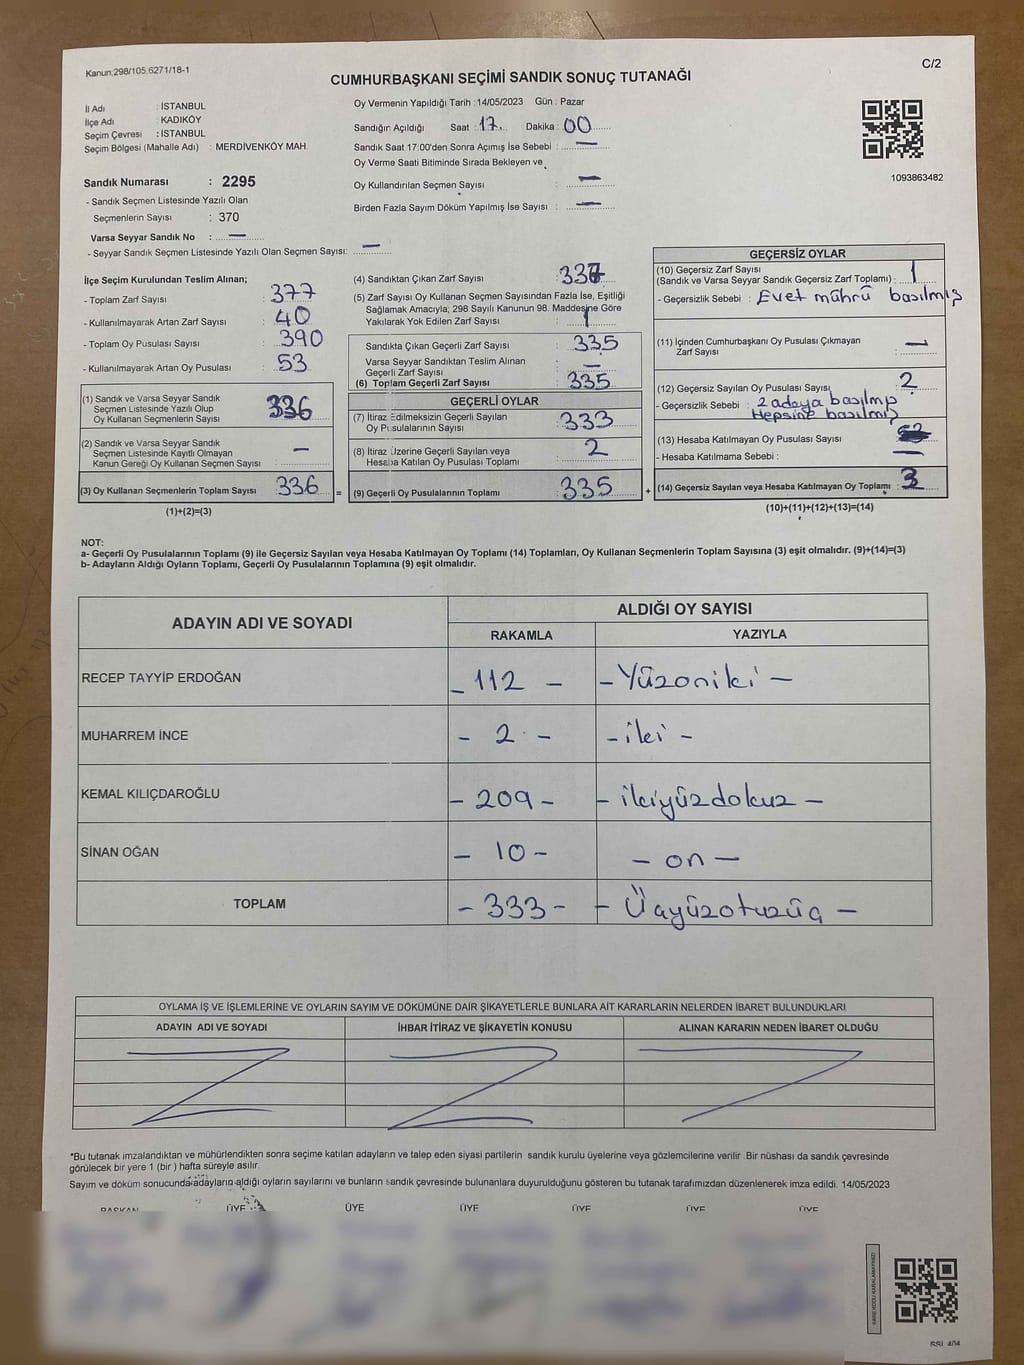 Kanun:298/105,6271/18-1
C/2
CUMHURBAŞKANI SEÇİMİ SANDIK SONUÇ TUTANAĞI
İl Adı : İSTANBUL
İlçe Adı : KADIKÖY
Seçim Çevresi : İSTANBUL
Seçim Bölgesi (Mahalle Adı) : MERDİVENKÖY MAH.
Sandık Numarası : 2295
- Sandık Seçmen Listesinde Yazılı Olan
Seçmenlerin Sayısı : 370
Varsa Seyyar Sandık No : —
- Seyyar Sandık Seçmen Listesinde Yazılı Olan Seçmen Sayısı: —
Oy Vermenin Yapıldığı Tarih : 14/05/2023 Gün : Pazar
Sandığın Açıldığı Saat : 17 Dakika : 00
Sandık Saat 17:00'den Sonra Açımış İse Sebebi : —
Oy Verme Saati Bitiminde Sırada Bekleyen ve
Oy Kullandırılan Seçmen Sayısı : —
Birden Fazla Sayım Döküm Yapılmış İse Sayısı : —
1093863482
İlçe Seçim Kurulundan Teslim Alınan;
- Toplam Zarf Sayısı : 377
- Kullanılmayarak Artan Zarf Sayısı : 40
- Toplam Oy Pusulası Sayısı : 390
- Kullanılmayarak Artan Oy Pusulası : 53
(1) Sandık ve Varsa Seyyar Sandık
Seçmen Listesinde Yazılı Olup
Oy Kullanan Seçmenlerin Sayısı : 336
(2) Sandık ve Varsa Seyyar Sandık
Seçmen Listesinde Kayıtlı Olmayan
Kanun Gereği Oy Kullanan Seçmen Sayısı : —
(3) Oy Kullanan Seçmenlerin Toplam Sayısı : 336 =
(1)+(2)=(3)
(4) Sandıktan Çıkan Zarf Sayısı : 337
(5) Zarf Sayısı Oy Kullanan Seçmen Sayısından Fazla İse, Eşitliği
Sağlamak Amacıyla; 298 Sayılı Kanunun 98. Maddesine Göre
Yakılarak Yok Edilen Zarf Sayısı : 1
Sandıkta Çıkan Geçerli Zarf Sayısı : 335
Varsa Seyyar Sandıktan Teslim Alınan
Geçerli Zarf Sayısı : —
(6) Toplam Geçerli Zarf Sayısı : 335
GEÇERLİ OYLAR
(7) İtiraz Edilmeksizin Geçerli Sayılan
Oy Pusulalarının Sayısı : 333
(8) İtiraz Üzerine Geçerli Sayılan veya
Hesaba Katılan Oy Pusulası Toplamı : 2
(9) Geçerli Oy Pusulalarının Toplamı : 335 +
GEÇERSİZ OYLAR
(10) Geçersiz Zarf Sayısı
(Sandık ve Varsa Seyyar Sandık Geçersiz Zarf Toplamı) : 1
- Geçersizlik Sebebi : Evet mührü basılmış
(11) İçinden Cumhurbaşkanı Oy Pusulası Çıkmayan
Zarf Sayısı : —
(12) Geçersiz Sayılan Oy Pusulası Sayısı : 2
- Geçersizlik Sebebi : 2 adaya basılmış
Hepsine basılmış
(13) Hesaba Katılmayan Oy Pusulası Sayısı :
- Hesaba Katılmama Sebebi : —
(14) Geçersiz Sayılan veya Hesaba Katılmayan Oy Toplamı : 3
(10)+(11)+(12)+(13)=(14)
NOT:
a- Geçerli Oy Pusulalarının Toplamı (9) ile Geçersiz Sayılan veya Hesaba Katılmayan Oy Toplamı (14) Toplamları, Oy Kullanan Seçmenlerin Toplam Sayısına (3) eşit olmalıdır. (9)+(14)=(3)
b- Adayların Aldığı Oyların Toplamı, Geçerli Oy Pusulalarının Toplamına (9) eşit olmalıdır.
ADAYIN ADI VE SOYADI
ALDIĞI OY SAYISI
RAKAMLA YAZIYLA
RECEP TAYYİP ERDOĞAN – 112 – – Yüzoniki –
MUHARREM İNCE – 2 – – iki –
KEMAL KILIÇDAROĞLU – 209 – – ikiyüzdokuz –
SİNAN OĞAN – 10 – – on –
TOPLAM – 333 – – Üçyüzotuzüç –
OYLAMA İŞ VE İŞLEMLERİNE VE OYLARIN SAYIM VE DÖKÜMÜNE DAİR ŞİKAYETLERLE BUNLARA AİT KARARLARIN NELERDEN İBARET BULUNDUKLARI
ADAYIN ADI VE SOYADI İHBAR İTİRAZ VE ŞİKAYETİN KONUSU ALINAN KARARIN NEDEN İBARET OLDUĞU
*Bu tutanak imzalandıktan ve mühürlendikten sonra seçime katılan adayların ve talep eden siyasi partilerin sandık kurulu üyelerine veya gözlemcilerine verilir .Bir nüshası da sandık çevresinde
görülecek bir yere 1 (bir ) hafta süreyle asılır.
Sayım ve döküm sonucunda adayların aldığı oyların sayılarını ve bunların sandık çevresinde bulunanlara duyurulduğunu gösteren bu tutanak tarafımızdan düzenlenerek imza edildi. 14/05/2023
BAŞKAN ÜYE ÜYE ÜYE ÜYE ÜYE ÜYE